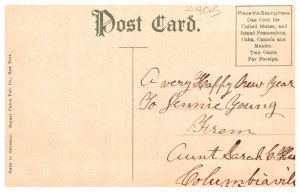 2805
Post Card.
Place the Stamp Here
One Cent for
United States, and
Island Possessions,
Cuba, Canada and
Mexico.
Two Cents
For Foreign.
A very Happy New Year
To Jennie Young
From
Aunt Sarah E
Columbiavil
Made in Germany. Bryant Union Pub. Co., New York.